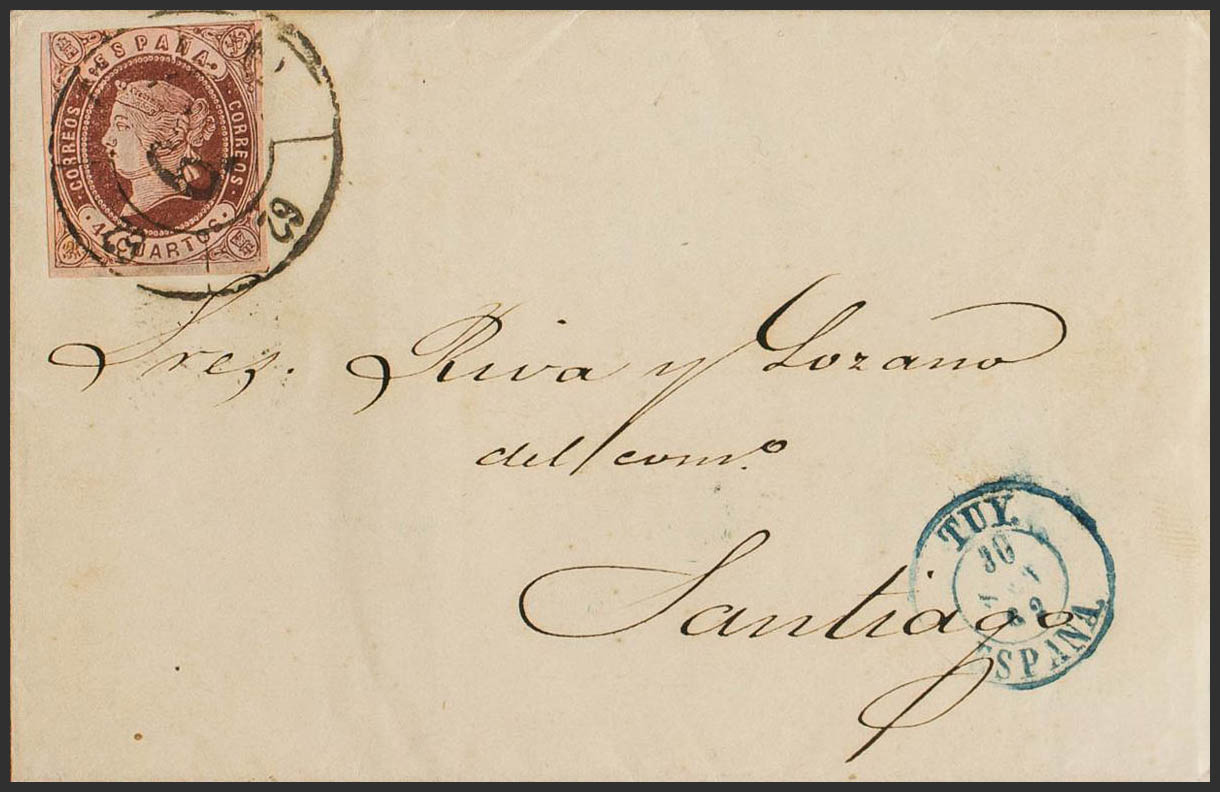 ESPAÑA
CORREOS
CORREOS
4 CUARTOS
62
Sres. Riva y Lozano
del com.º
Santiago
TUY.
30
ESPAÑA.